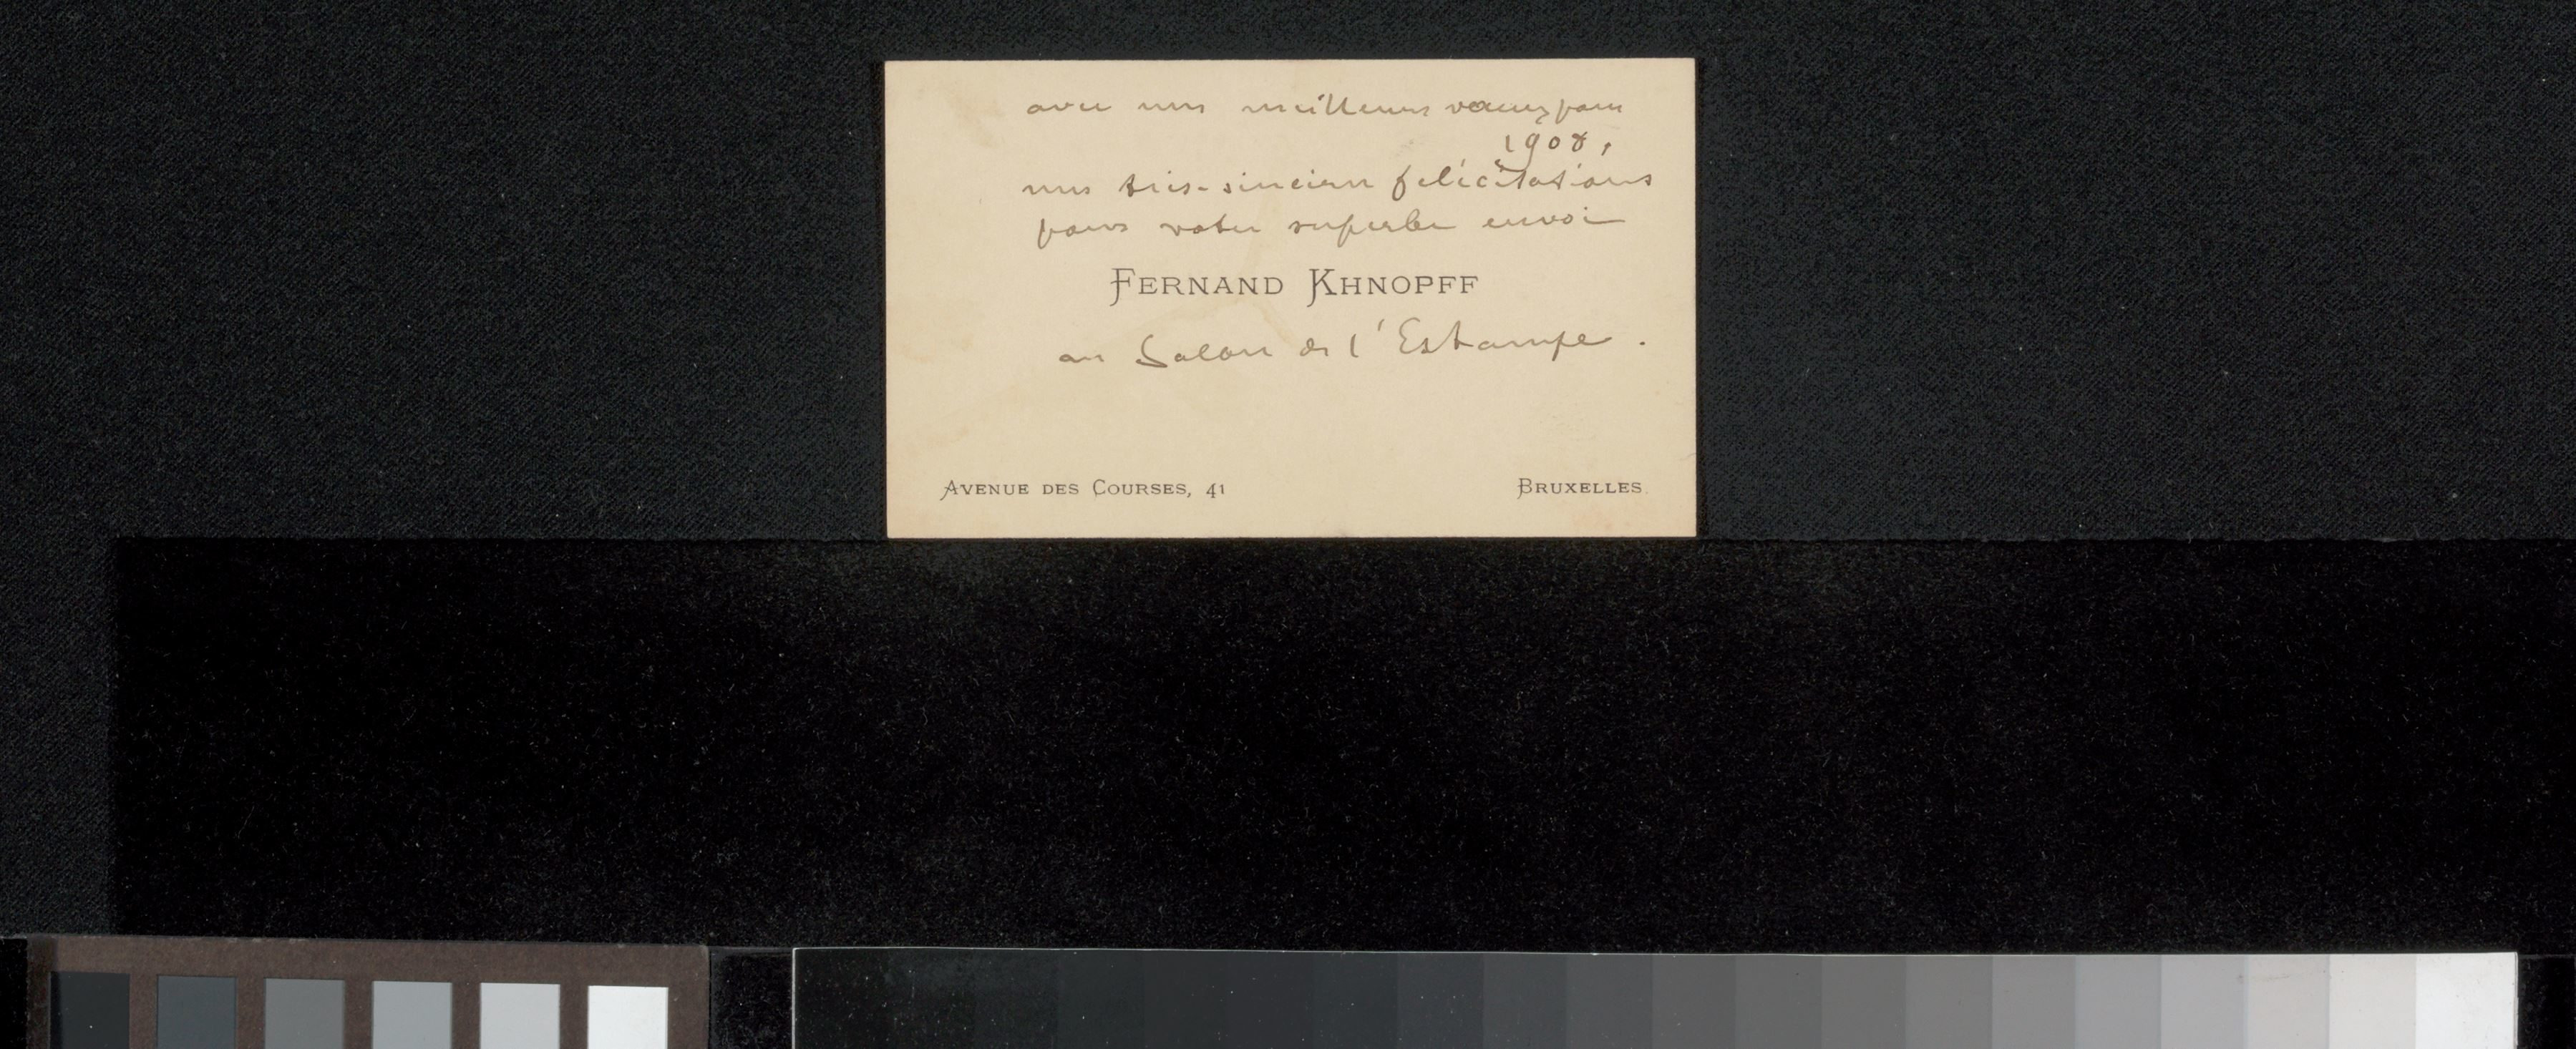 avec mes meilleurs vœux pour
1908,
mes très-sincères félicitations
pour votre superbe envoi
FERNAND KHNOPFF
au Salon de l'Estampe.
AVENUE DES COURSES, 41
BRUXELLES